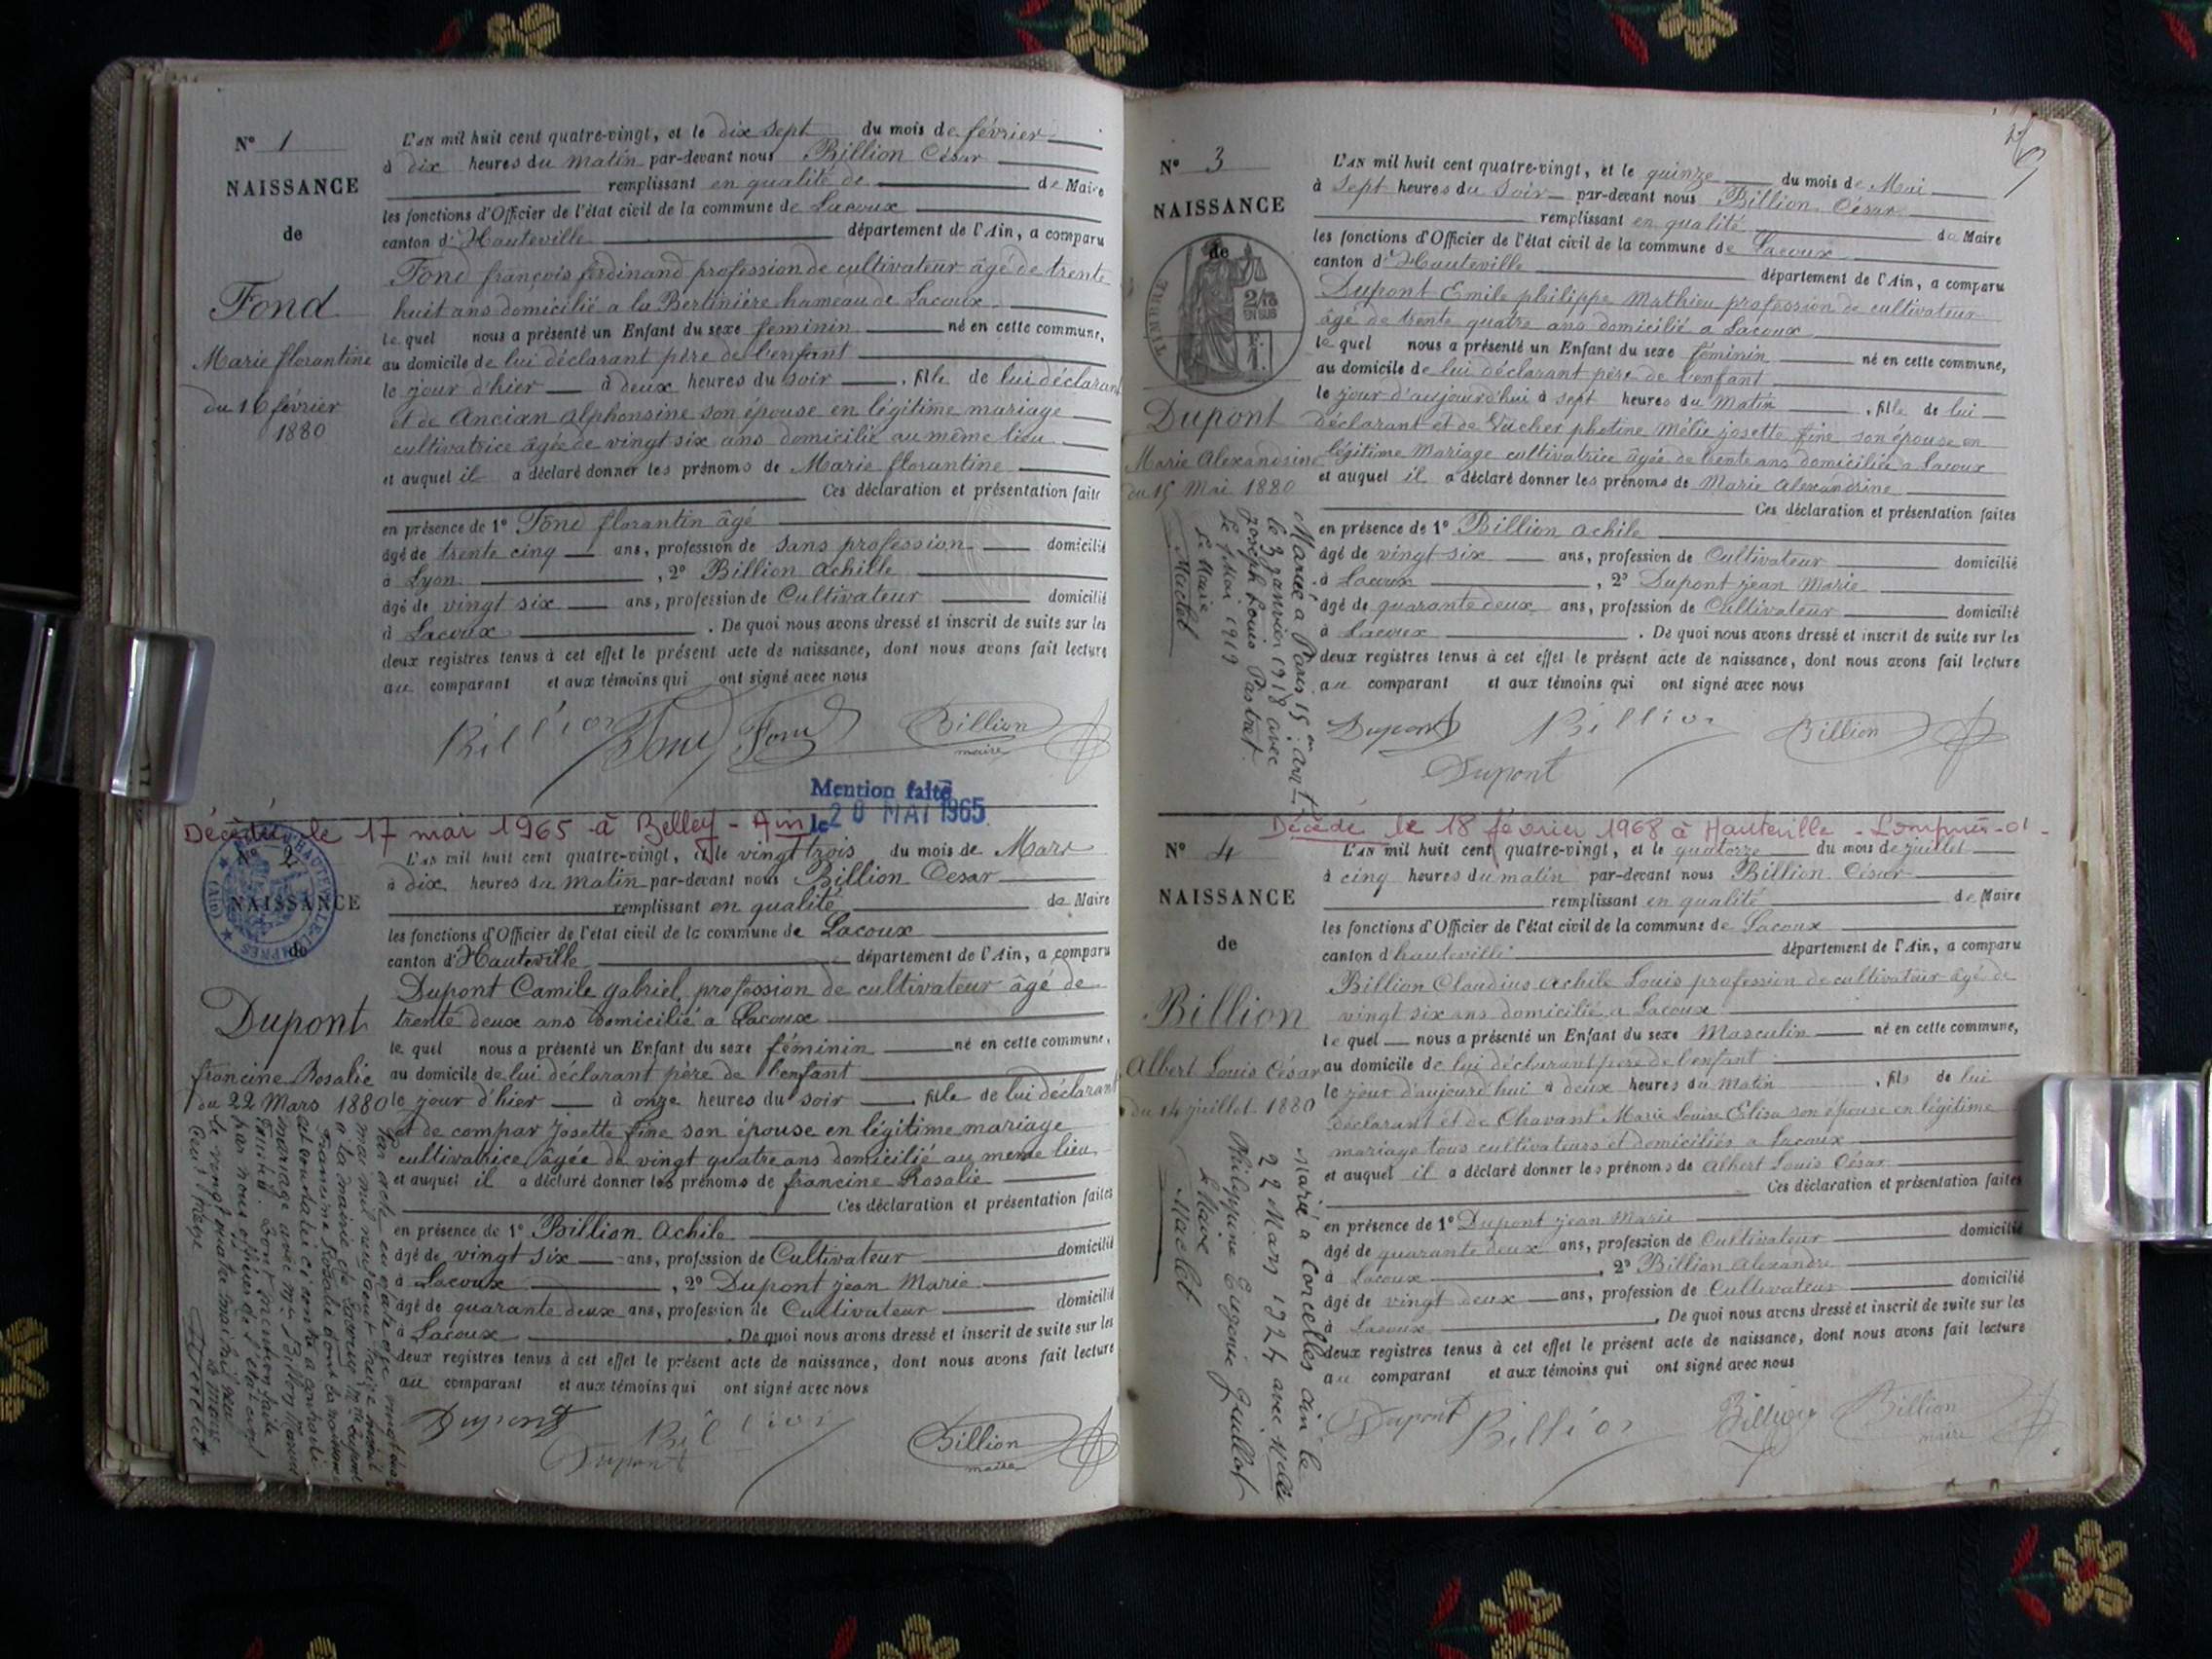 N° 1
NAISSANCE
de
Fond
Marie florantine
du 16 février
1880
L'AN mil huit cent quatre-vingt, et le dix sept du mois de février
à dix heures du matin par-devant nous Billion César
remplissant en qualité de de Maire
les fonctions d'Officier de l'état civil de la commune de Lacoux
canton d'Hauteville département de l'Ain, a comparu
Fond françois ferdinand profession de cultivateur âgé de trente
huit ans domicilié a la Bertinière hameau de Lacoux
le quel nous a présenté un Enfant du sexe féminin né en cette commune,
au domicile de lui déclarant père de l'enfant
le jour d'hier à deux heures du soir, fille de lui déclarant
et de Ancian alphonsine son épouse en légitime mariage
cultivatrice âgée de vingt six ans domicilié au même lieu
et auquel il a déclaré donner les prénoms de Marie florantine
Ces déclaration et présentation faite
en présence de 1° Fond florantin âgé
âgé de trente cinq ans, profession de sans profession domicilié
à Lyon, 2° Billion achille
âgé de vingt six ans, profession de Cultivateur domicilié
à Lacoux. De quoi nous avons dressé et inscrit de suite sur les
deux registres tenus à cet effet le présent acte de naissance, dont nous avons fait lecture
au comparant et aux témoins qui ont signé avec nous
Billion Fond Fond Billion
maire
Mention faite
le 20 MAI 1965
Décédée le 17 mai 1965 à Belley - Ain
N° 2
NAISSANCE
de
Dupont
francine Rosalie
du 22 Mars 1880
L'AN mil huit cent quatre-vingt, et le vingt trois du mois de Mars
à dix heures du matin par-devant nous Billion Cesar
remplissant en qualité de Maire
les fonctions d'Officier de l'état civil de la commune de Lacoux
canton d'Hauteville département de l'Ain, a comparu
Dupont Camile gabriel profession de cultivateur âgé de
trente deux ans domicilié a Lacoux
le quel nous a présenté un Enfant du sexe féminin né en cette commune,
au domicile de lui déclarant père de l'enfant
le jour d'hier à onze heures du soir, fille de lui déclarant
et de compar Josette fine son épouse en légitime mariage
cultivatrice âgée de vingt quatre ans domicilié au meme lieu
et auquel il a déclaré donner les prénoms de francine Rosalie
Ces déclaration et présentation faites
en présence de 1° Billion Achile
âgé de vingt six ans, profession de Cultivateur domicilié
à Lacoux, 2° Dupont jean Marie
âgé de quarante deux ans, profession de Cultivateur domicilié
à Lacoux. De quoi nous avons dressé et inscrit de suite sur les
deux registres tenus à cet effet le présent acte de naissance, dont nous avons fait lecture
au comparant et aux témoins qui ont signé avec nous
Dupont Billion Billion
Dupont maire
N° 3
NAISSANCE
de
TIMBRE
2/10
EN SUS
Dupont
Marie Alexandrine
du 15 Mai 1880
Mariée à Paris 15en arrt
le 3 janvier 1918 avec
Joseph Louis Pastret
Le Mai 1919
Le Maire
Maclet
L'AN mil huit cent quatre-vingt, et le quinze du mois de Mai
à sept heures du soir par-devant nous Billion César
remplissant en qualité de Maire
les fonctions d'Officier de l'état civil de la commune de Lacoux
canton d'Hauteville département de l'Ain, a comparu
Dupont Emile philippe Mathieu profession de cultivateur
âgé de trente quatre ans domicilié a Lacoux
le quel nous a présenté un Enfant du sexe féminin né en cette commune,
au domicile de lui déclarant père de l'enfant
le jour d'aujourd'hui à sept heures du Matin, fille de lui
déclarant et de Vücher photine Mélie josette fine son épouse en
légitime Mariage cultivatrice âgée de trente ans domiciliée a Lacoux
et auquel il a déclaré donner les prénoms de Marie alexandrine
Ces déclaration et présentation faites
en présence de 1° Billion achile
âgé de vingt six ans, profession de Cultivateur domicilié
à Lacoux, 2° Dupont jean Marie
âgé de quarante deux ans, profession de Cultivateur domicilié
à Lacoux. De quoi nous avons dressé et inscrit de suite sur les
deux registres tenus à cet effet le présent acte de naissance, dont nous avons fait lecture
au comparant et aux témoins qui ont signé avec nous
Dupont Billion Billion
Dupont
Décédé le 18 février 1968 à Hauteville - Lompnes-01-
N° 4
NAISSANCE
de
Billion
Albert Louis César
du 14 juillet 1880
Marié à Corcelles Ain le
22 Mars 1924 avec Melle
Philippine Eugénie Juillot
Maclet
L'AN mil huit cent quatre-vingt, et le quatorze du mois de juillet
à cinq heures du matin par-devant nous Billion César
remplissant en qualité de Maire
les fonctions d'Officier de l'état civil de la commune de Lacoux
canton d'hauteville département de l'Ain, a comparu
Billion Claudius achile Louis profession de cultivateur âgé de
vingt six ans domicilié a Lacoux
le quel nous a présenté un Enfant du sexe Masculin né en cette commune,
au domicile de lui déclarant père de l'enfant
le jour d'aujourd'hui à deux heures du Matin, fils de lui
déclarant et de Chavant Marie Louise Elisa son épouse en légitime
mariage tous cultivateurs et domiciliés a Lacoux
et auquel il a déclaré donner les prénoms de Albert Louis César
Ces déclaration et présentation faites
en présence de 1° Dupont jean Marie
âgé de quarante deux ans, profession de Cultivateur domicilié
à Lacoux, 2° Billion Alexandre
âgé de vingt deux ans, profession de Cultivateur domicilié
à Lacoux. De quoi nous avons dressé et inscrit de suite sur les
deux registres tenus à cet effet le présent acte de naissance, dont nous avons fait lecture
au comparant et aux témoins qui ont signé avec nous
Dupont Billion Billion Billion
maire